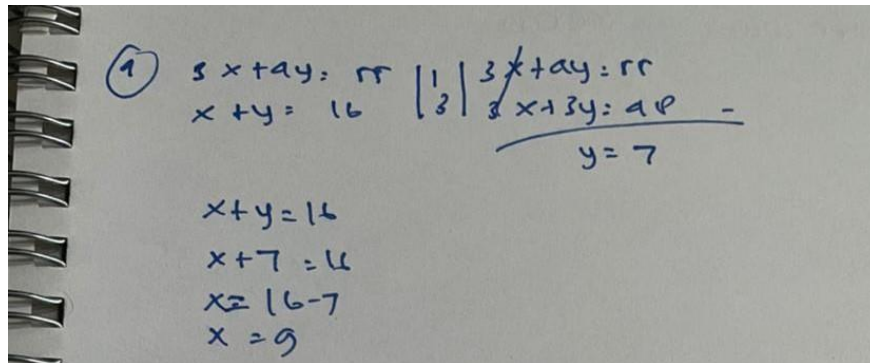 ① 3x+4y = 55 |1| 3x+4y = 55
x+y = 16 |3| 3x+3y = 48 -
y = 7
x+y = 16
x+7 = 16
x = 16-7
x = 9